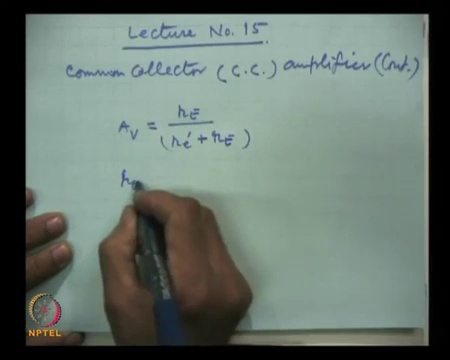 Lecture No. 15
Common Collector (C.C.) amplifier (Cont.)
A_V = r_E / (r_e' + r_E)
r
NPTEL